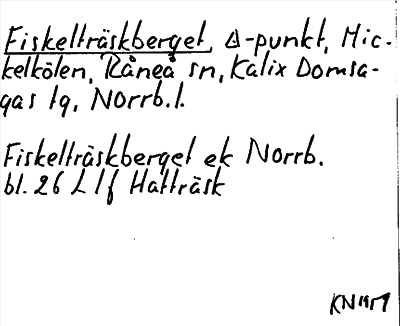 Fiskelträskberget, △-punkt, Mic-
kelkölen, Råneå sn, Kalix Domsa-
gas tg, Norrb. l.
Fiskelträskberget ek Norrb.
bl. 26 L lf Hatträsk